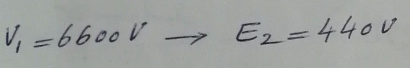 V₁ = 6600 V → E₂ = 440 V